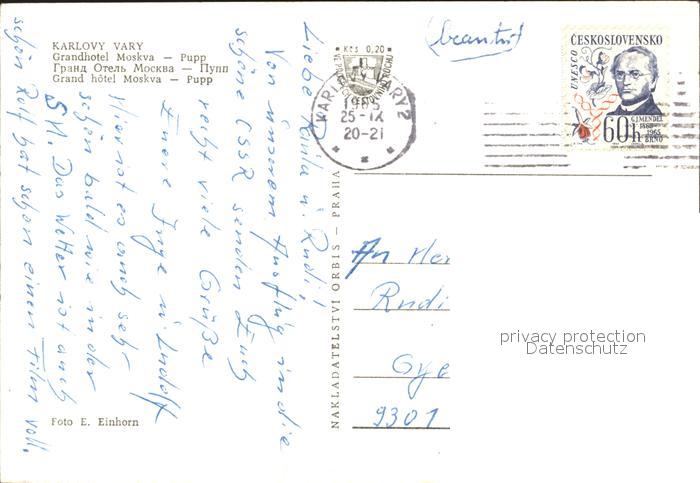 KARLOVY VARY
Grandhotel Moskva — Pupp
Гранд Отель Москва — Пупп
Grand hôtel Moskva — Pupp
Liebe u. Rudi!
Von unserem Ausflug in die
schöne ČSSR senden Euch
recht viele Grüße
Euere Inge u. Rudolf
Hier ist es auch sehr
schön bald wie in der
SU. Das Wetter ist auch
schön Rolf hat schon einen Film voll.
Foto E. Einhorn
NAKLADATELSTVÍ ORBIS — PRAHA
Kčs 0,20
KARLOVY VARY 2
1965
25-IX
20-21
ČESKOSLOVENSKO
UNESCO
G.J.MENDEL
1865
1965
BRNO
60h
An
Rudi
9301
privacy protection
Datenschutz